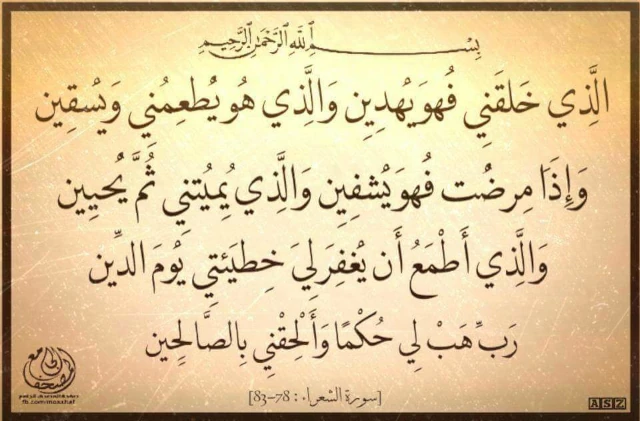 بِسْمِ اللَّهِ الرَّحْمَنِ الرَّحِيمِ
الَّذِي خَلَقَنِي فَهُوَ يَهْدِينِ وَالَّذِي هُوَ يُطْعِمُنِي وَيَسْقِين
وَإِذَا مَرِضْت فَهُوَ يَشْفِينِ وَالَّذِي يُمِيتُنِي ثُمَّ يُحْيِين
وَالَّذِي أَطْمَعُ أَن يَغْفِرَ لِيَ خَطِيئَتِي يَوْمَ الدِّين
رَبِّ هَبْ لِي حُكْمًا وَأَلْحِقْنِي بِالصَّالِحِين
[سورة الشعراء : 78-83]
المصحف الجامع
fb.com/mosxhaf
ASZ